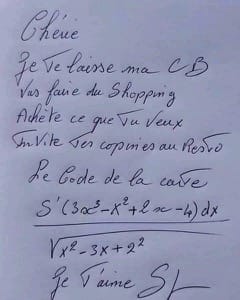 Chérie
Je Te laisse ma CB
Vas faire du Shopping
Achète ce que Tu Veux
Invite Tes copines au Resto
Le Code de la carte
S'(3x³-x²+2x-4)dx
√x²-3x+2²
Je T'aime